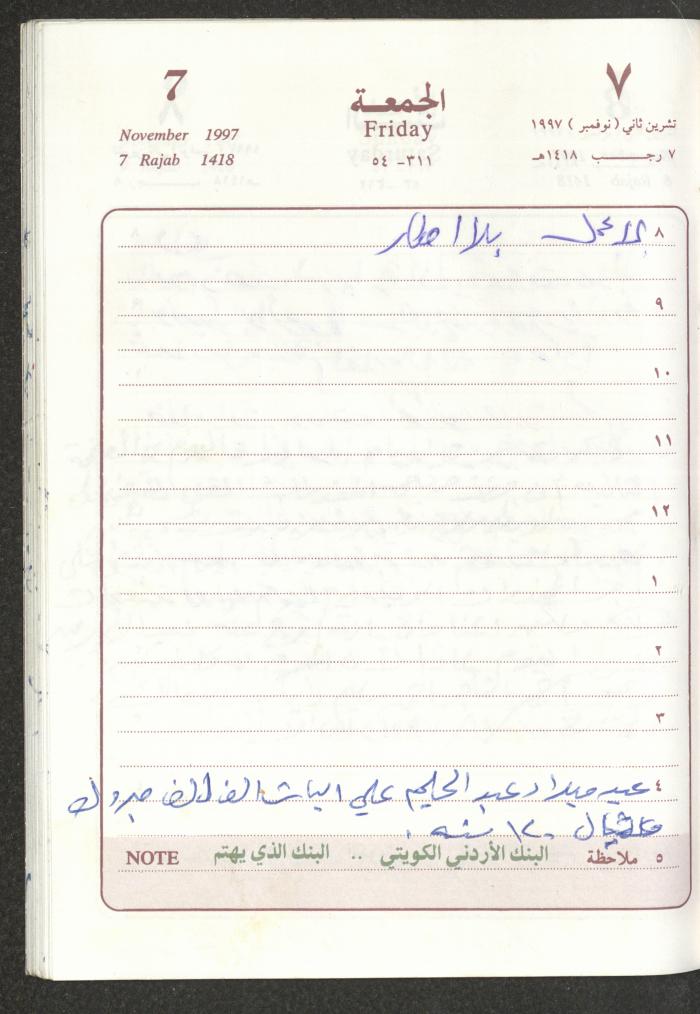 7 الجمعة ٧
November 1997 Friday تشرين ثاني ( نوفمبر ) ١٩٩٧
7 Rajab 1418 ٣١١-٥٤ ٧ رجـــب ١٤١٨هـ
٨ بلا عمل بلا
٩
١٠
١١
١٢
١
٢
٣
٤ عيد ميلاد عبد الحليم علي الف الف مبروك
١٢٠ سنه .
٥ ملاحظة البنك الأردني الكويتي .. البنك الذي يهتم NOTE